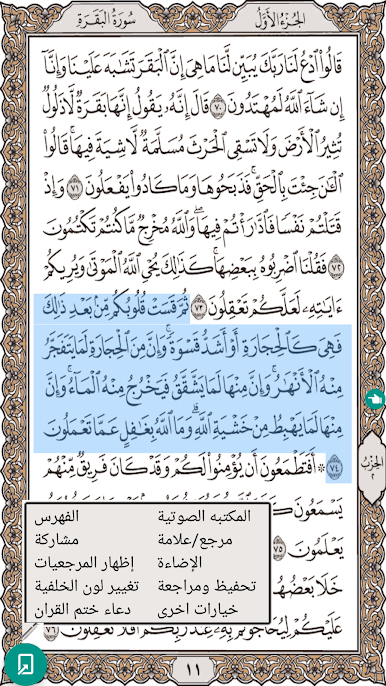 سُورَةُ البَقَرَةِ
الجُزْءُ الأَوَّلُ
قَالُوا۟ ٱدْعُ لَنَا رَبَّكَ يُبَيِّن لَّنَا مَا هِىَ إِنَّ ٱلْبَقَرَ تَشَٰبَهَ عَلَيْنَا وَإِنَّآ
إِن شَآءَ ٱللَّهُ لَمُهْتَدُونَ ٧٠ قَالَ إِنَّهُۥ يَقُولُ إِنَّهَا بَقَرَةٌ لَّا ذَلُولٌ
تُثِيرُ ٱلْأَرْضَ وَلَا تَسْقِى ٱلْحَرْثَ مُسَلَّمَةٌ لَّا شِيَةَ فِيهَا ۚ قَالُوا۟
ٱلْـَٰٔنَ جِئْتَ بِٱلْحَقِّ ۚ فَذَبَحُوهَا وَمَا كَادُوا۟ يَفْعَلُونَ ٧١ وَإِذْ
قَتَلْتُمْ نَفْسًا فَٱدَّٰرَْٰٔتُمْ فِيهَا ۖ وَٱللَّهُ مُخْرِجٌ مَّا كُنتُمْ تَكْتُمُونَ
٧٢ فَقُلْنَا ٱضْرِبُوهُ بِبَعْضِهَا ۚ كَذَٰلِكَ يُحْىِ ٱللَّهُ ٱلْمَوْتَىٰ وَيُرِيكُمْ
ءَايَٰتِهِۦ لَعَلَّكُمْ تَعْقِلُونَ ٧٣ ثُمَّ قَسَتْ قُلُوبُكُم مِّنۢ بَعْدِ ذَٰلِكَ
فَهِىَ كَٱلْحِجَارَةِ أَوْ أَشَدُّ قَسْوَةً ۚ وَإِنَّ مِنَ ٱلْحِجَارَةِ لَمَا يَتَفَجَّرُ
مِنْهُ ٱلْأَنْهَٰرُ ۚ وَإِنَّ مِنْهَا لَمَا يَشَّقَّقُ فَيَخْرُجُ مِنْهُ ٱلْمَآءُ ۚ وَإِنَّ
مِنْهَا لَمَا يَهْبِطُ مِنْ خَشْيَةِ ٱللَّهِ ۗ وَمَا ٱللَّهُ بِغَٰفِلٍ عَمَّا تَعْمَلُونَ
٧٤ ۞ أَفَتَطْمَعُونَ أَن يُؤْمِنُوا۟ لَكُمْ وَقَدْ كَانَ فَرِيقٌ مِّنْهُمْ
الحِزْبُ
٢
يَسْمَعُونَ
يَعْلَمُونَ ٧٥
خَلَا بَعْضُهُمْ
عَلَيْكُمْ لِيُحَآجُّوكُم بِهِۦ عِندَ رَبِّكُمْ ۚ أَفَلَا تَعْقِلُونَ ٧٦
المكتبه الصوتية
الفهرس
مرجع/علامة
مشاركة
الإضاءة
إظهار المرجعيات
تحفيظ ومراجعة
تغيير لون الخلفية
خيارات اخرى
دعاء ختم القران
١١